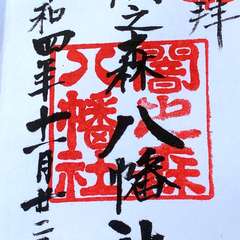 拝
之森八幡社
和四年十一月廿二
闇之森
八幡社